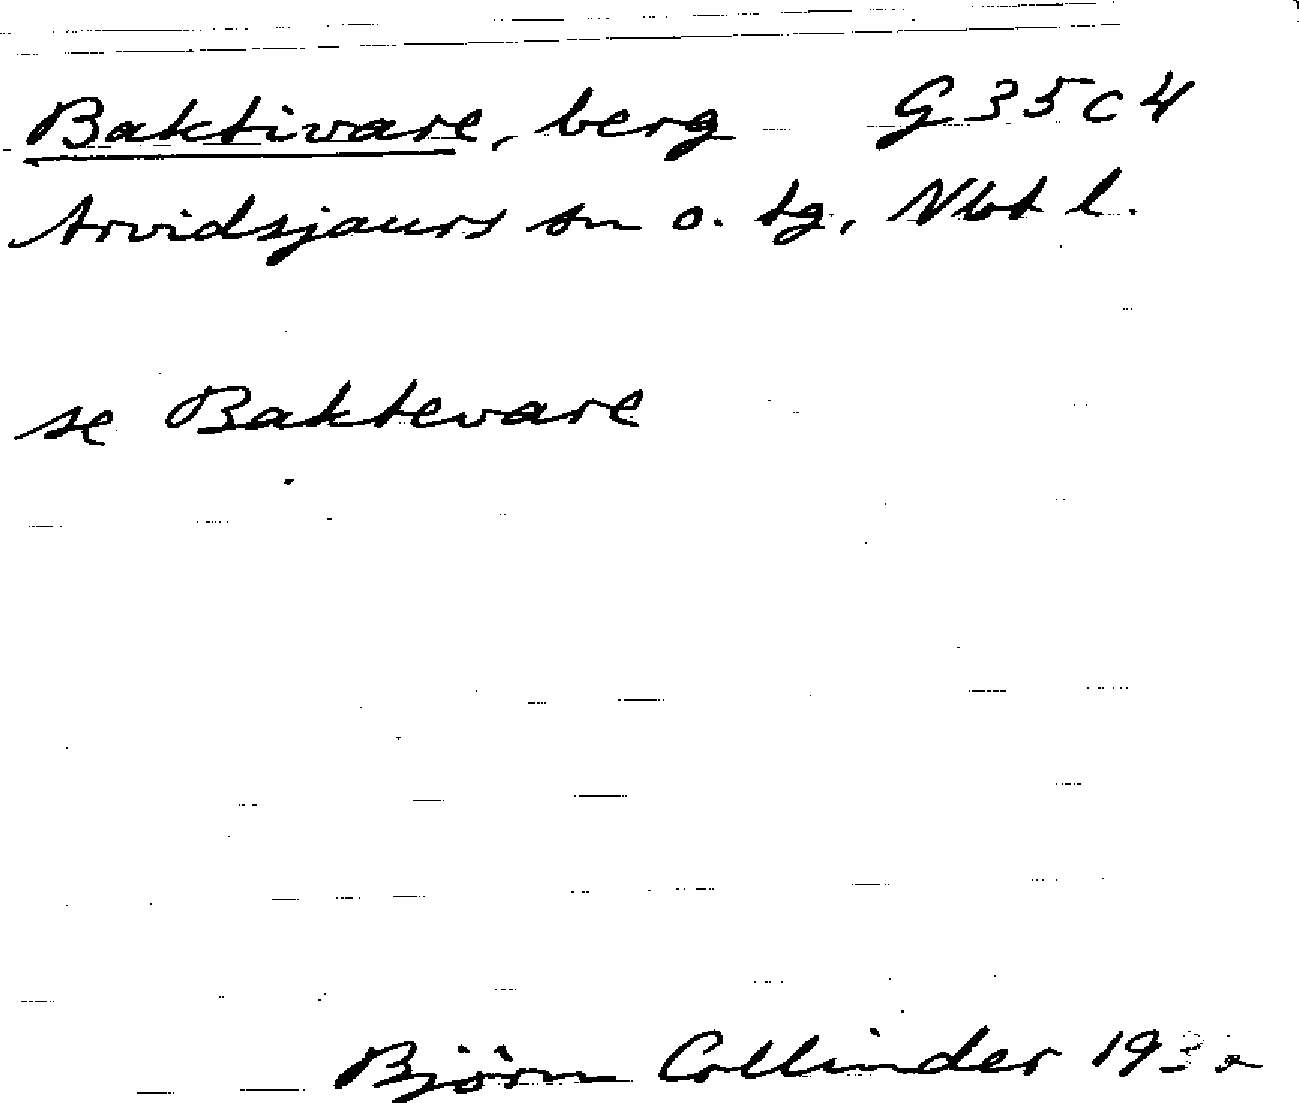 Baktivare, berg G 35 c 4
Arvidsjaurs sn o. tg, Nbt l.
se Baktevare
Björn Collinder